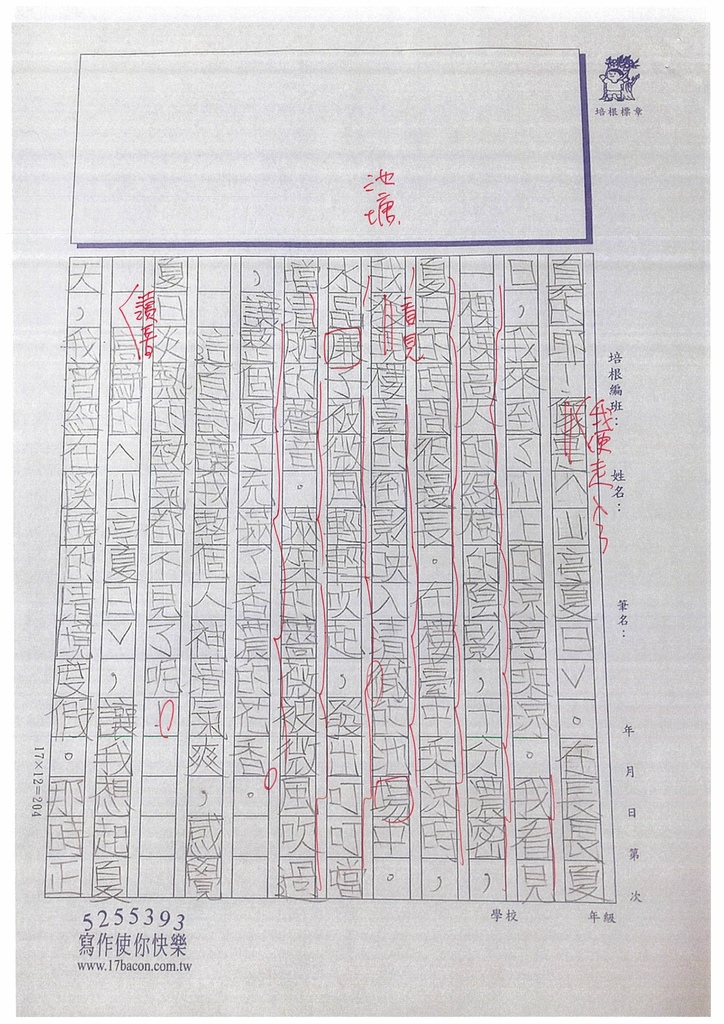 池塘
培根標章
培根編班：
姓名：
筆名：
年 月 日 第 次
我便走入了
真的耶！像〈山亭夏日〉。在長長夏
日，我來到了山上的涼亭乘涼。我看見
一棵棵高大的綠樹的陰影，十分濃密，
夏日的時間很漫長。在樓臺中乘涼時，
看見
我發現樓臺的倒影映入清澈的池塘中。
水晶簾了微微風輕輕吹起，發出叮叮噹
噹清脆的聲音。滿架的薔薇被微風吹過
，讓整個院子充滿了香濃的花香。
這首詩讓我整個人神清氣爽，感覺
夏日炎熱的熱氣都不見了呢！
讀著
高駢的〈山亭夏日〉，讓我想起夏
天，我曾經在溪頭的情境度假。那時正
17×12=204
學校 年級
5255393
寫作使你快樂
www.17bacon.com.tw